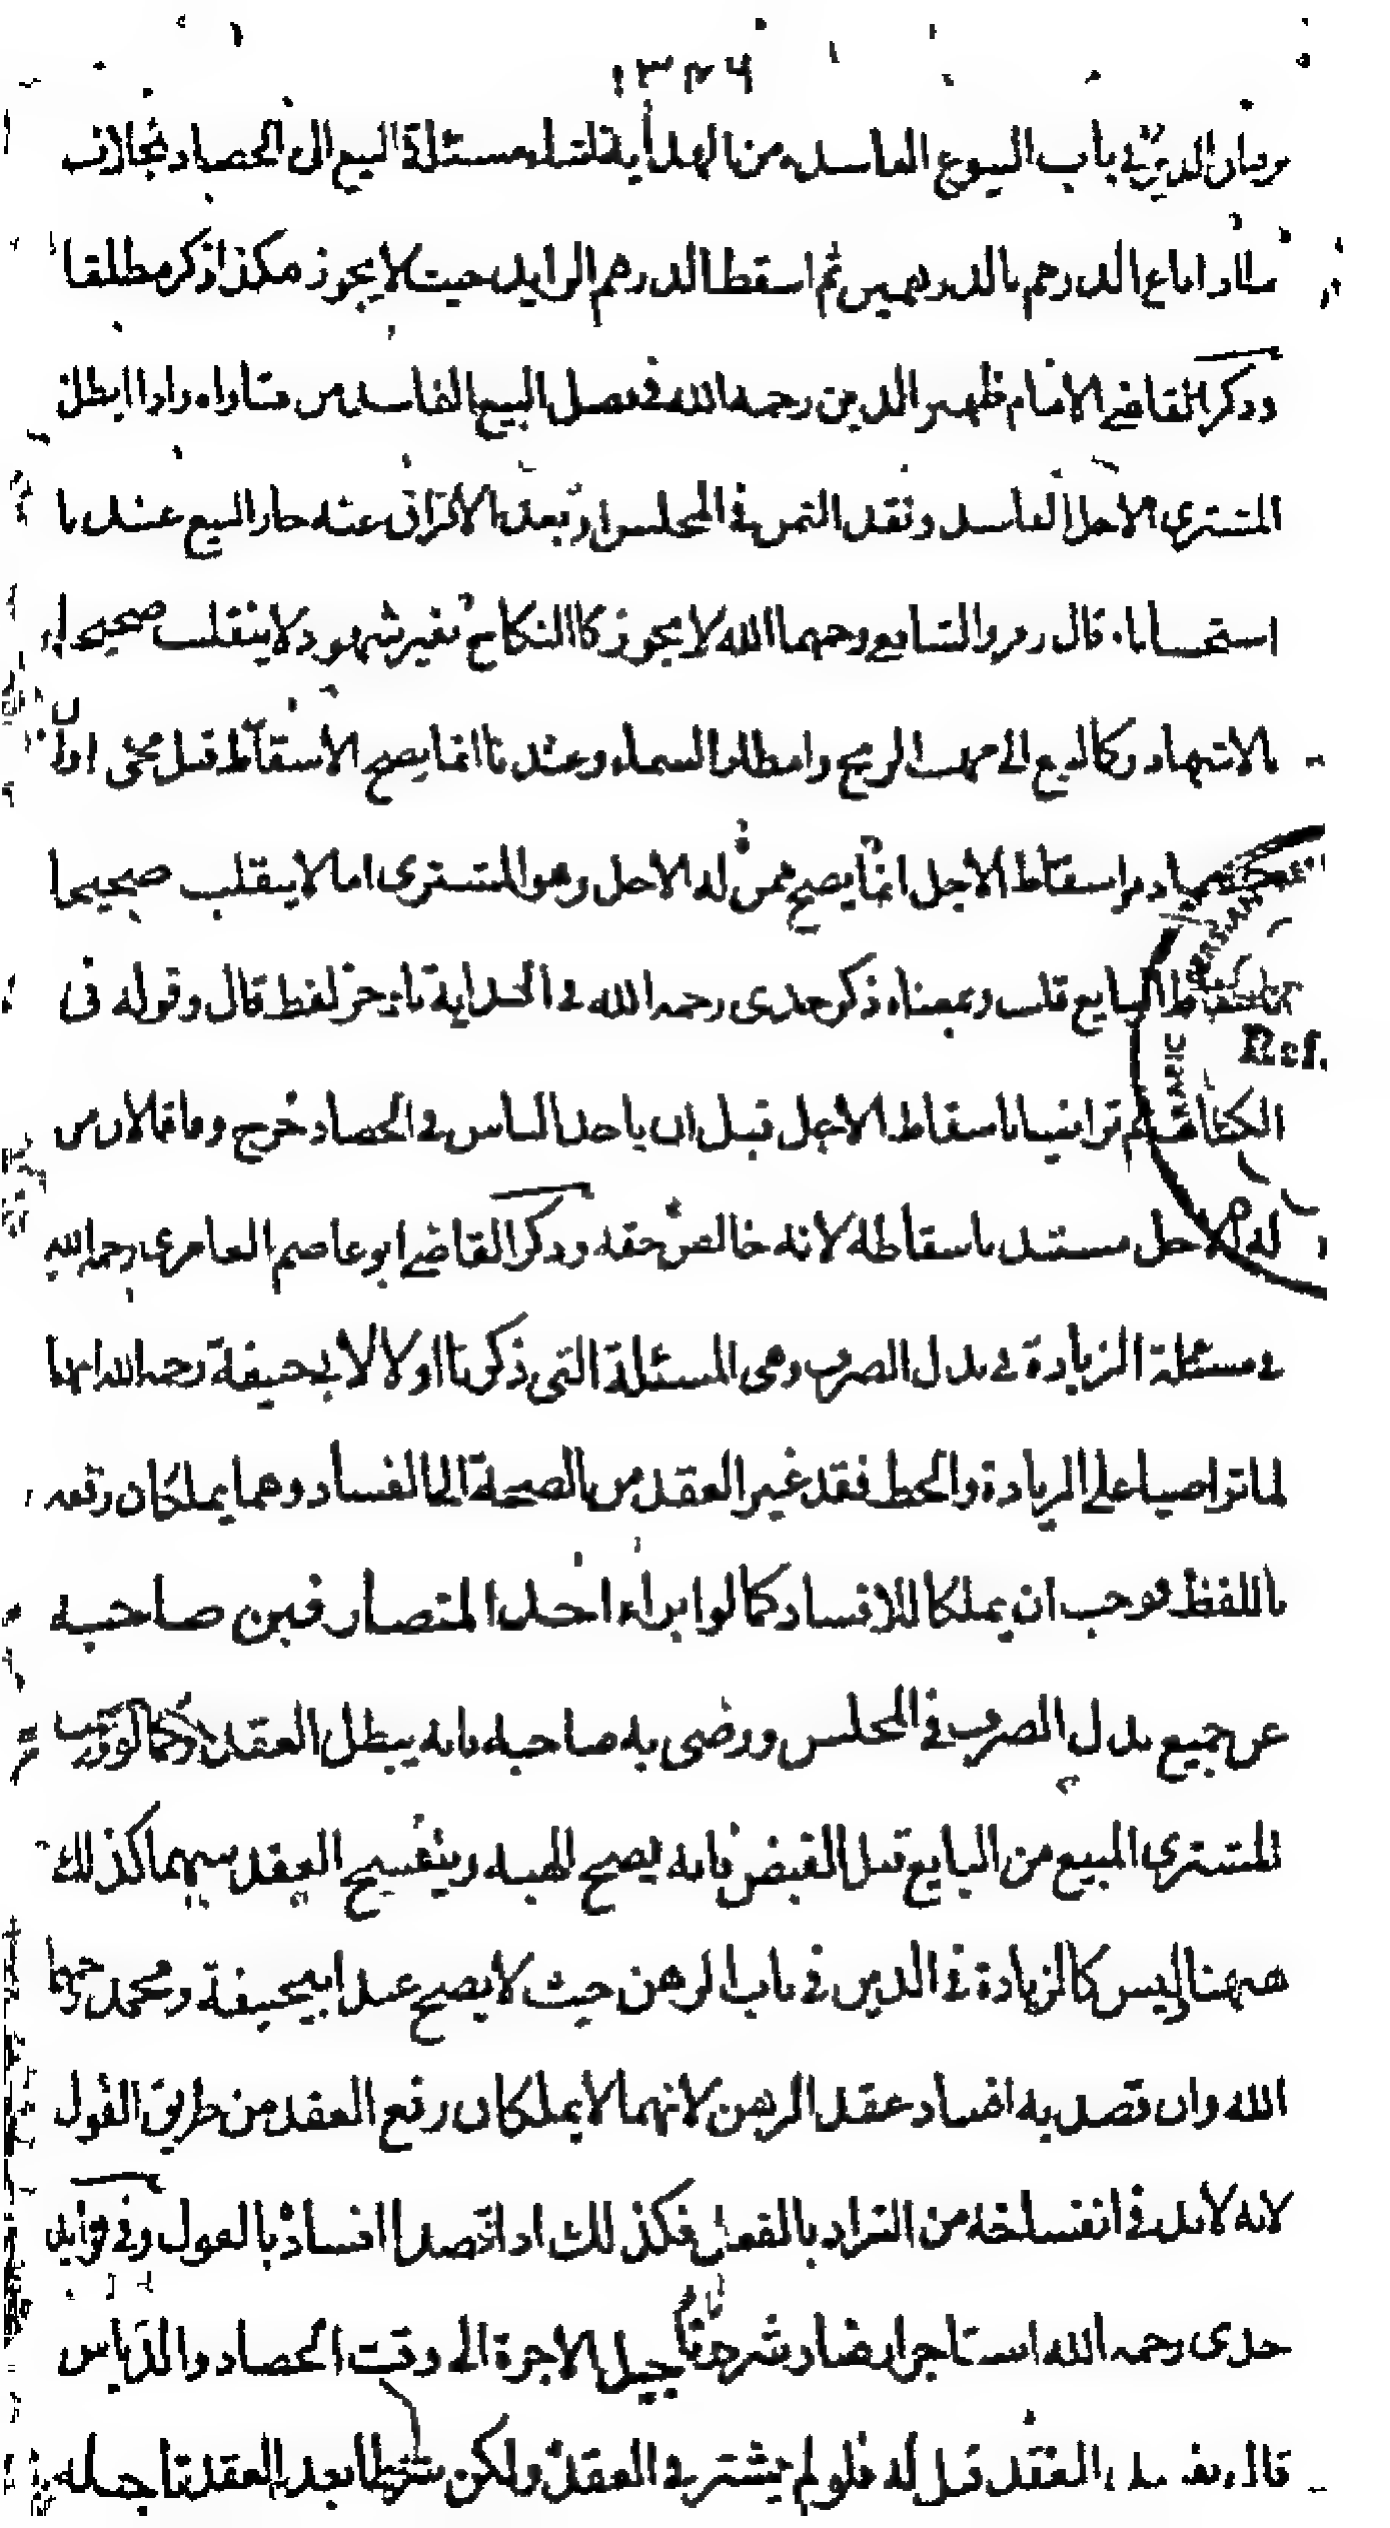 ١٣٤٦
برهان الدين في باب البيوع الفاسدة من الهداية قلت مسئلة البيع الى الحصاد بخلاف
ما اذا باع الدرهم بالدرهمين ثم اسقطا الدرهم الزايد حيث لا يجوز هكذا ذكر مطلقا
وذكر القاضي الامام ظهير الدين رحمه الله في فصل البيع الفاسد من فتاواه واذا ابطل
المشتري الاجل الفاسد ونقد الثمن في المجلس او بعد الافتراق عنه جاز البيع عندنا
استحسانا قال زفر والشافعي رحمهما الله لا يجوز كالنكاح بغير شهود لا ينقلب صحيحا
بالاشهاد وكالبيع الى مهب الريح وامطار السماء وعندنا انما يصح الاسقاط قبل مجئ اوان
الحصاد واسقاط الاجل انما يصح ممن له الاجل وهو المشتري اما لا ينقلب صحيحا
باسقاط البايع قلت وبمعناه ذكر جدي رحمه الله في الهداية باوجز لفظ قال وقوله في
الكتاب ثم تراضيا باسقاط الاجل قبل ان ياخذ الناس في الحصاد خرج وفاقا لان من
له الاجل مستبد باسقاطه لانه خالص حقه وذكر القاضي ابو عاصم العامري رحمه الله
في مسئلة الزيادة في بدل الصرف وهي المسئلة التي ذكرنا اولا لابي حنيفة رحمه الله انهما
لما تراضيا على الزيادة والحط فقد غير العقد من الصحة الى الفساد وهما يملكان رفعه
باللفظ فوجب ان يملكا للافساد كما لو ابراء احد المتصارفين صاحبه
عن جميع بدل الصرف في المجلس ورضى به صاحبه بانه يبطل العقد وكما لو وهب
المشتري المبيع من البايع قبل القبض فانه يصح الهبه وينفسخ العقد بينهما كذلك
ههنا ليس كالزيادة في الدين في باب الرهن حيث لا يصح عند ابيحنيفة ومحمد رحمهما
الله وان قصد به افساد عقد الرهن لانهما لا يملكان رفع العقد من طريق القول
لانه لا بد في انفساخه من التراد بالفعل فكذلك اذا قصدا افساده بالقول وفي فوايد
جدي رحمه الله استاجر ارضا وشرط تاجيل الاجرة الى وقت الحصاد والدياس
قال يفسد العقد قيل له فلو لم يشتر في العقد ولكن شرطا بعد العقد تاجيله